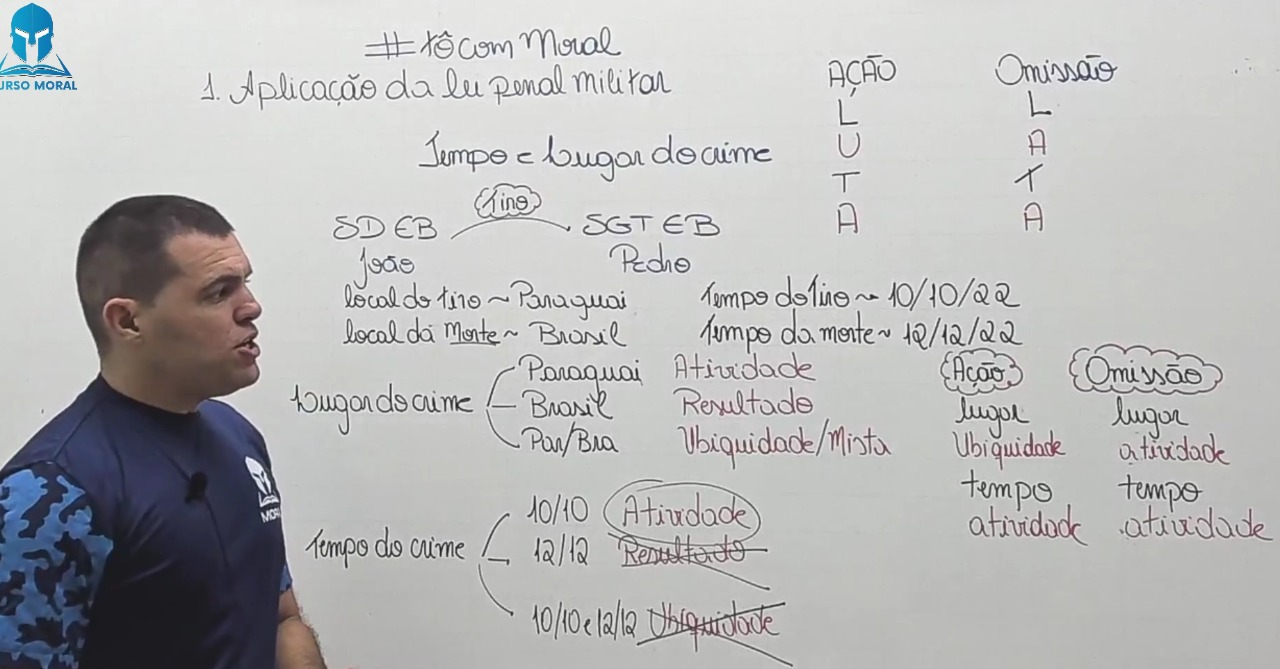 CURSO MORAL
#tôcom Moral
1. Aplicação da lei penal militar
Tempo e Lugar do crime
AÇÃO
L
U
T
A
Omissão
L
A
T
A
SD EB Tiro SGT EB
João Pedro
local do tiro ~ Paraguai
local da Morte ~ Brasil
Tempo do Tiro ~ 10/10/22
Tempo da morte ~ 12/12/22
Lugar do crime
Paraguai Atividade
Brasil Resultado
Par/Bra Ubiquidade/Mista
Tempo do crime
10/10 Atividade
12/12 Resultado
10/10 e 12/12 Ubiquidade
Ação
lugar
Ubiquidade
tempo
atividade
Omissão
lugar
atividade
tempo
atividade
MORAL